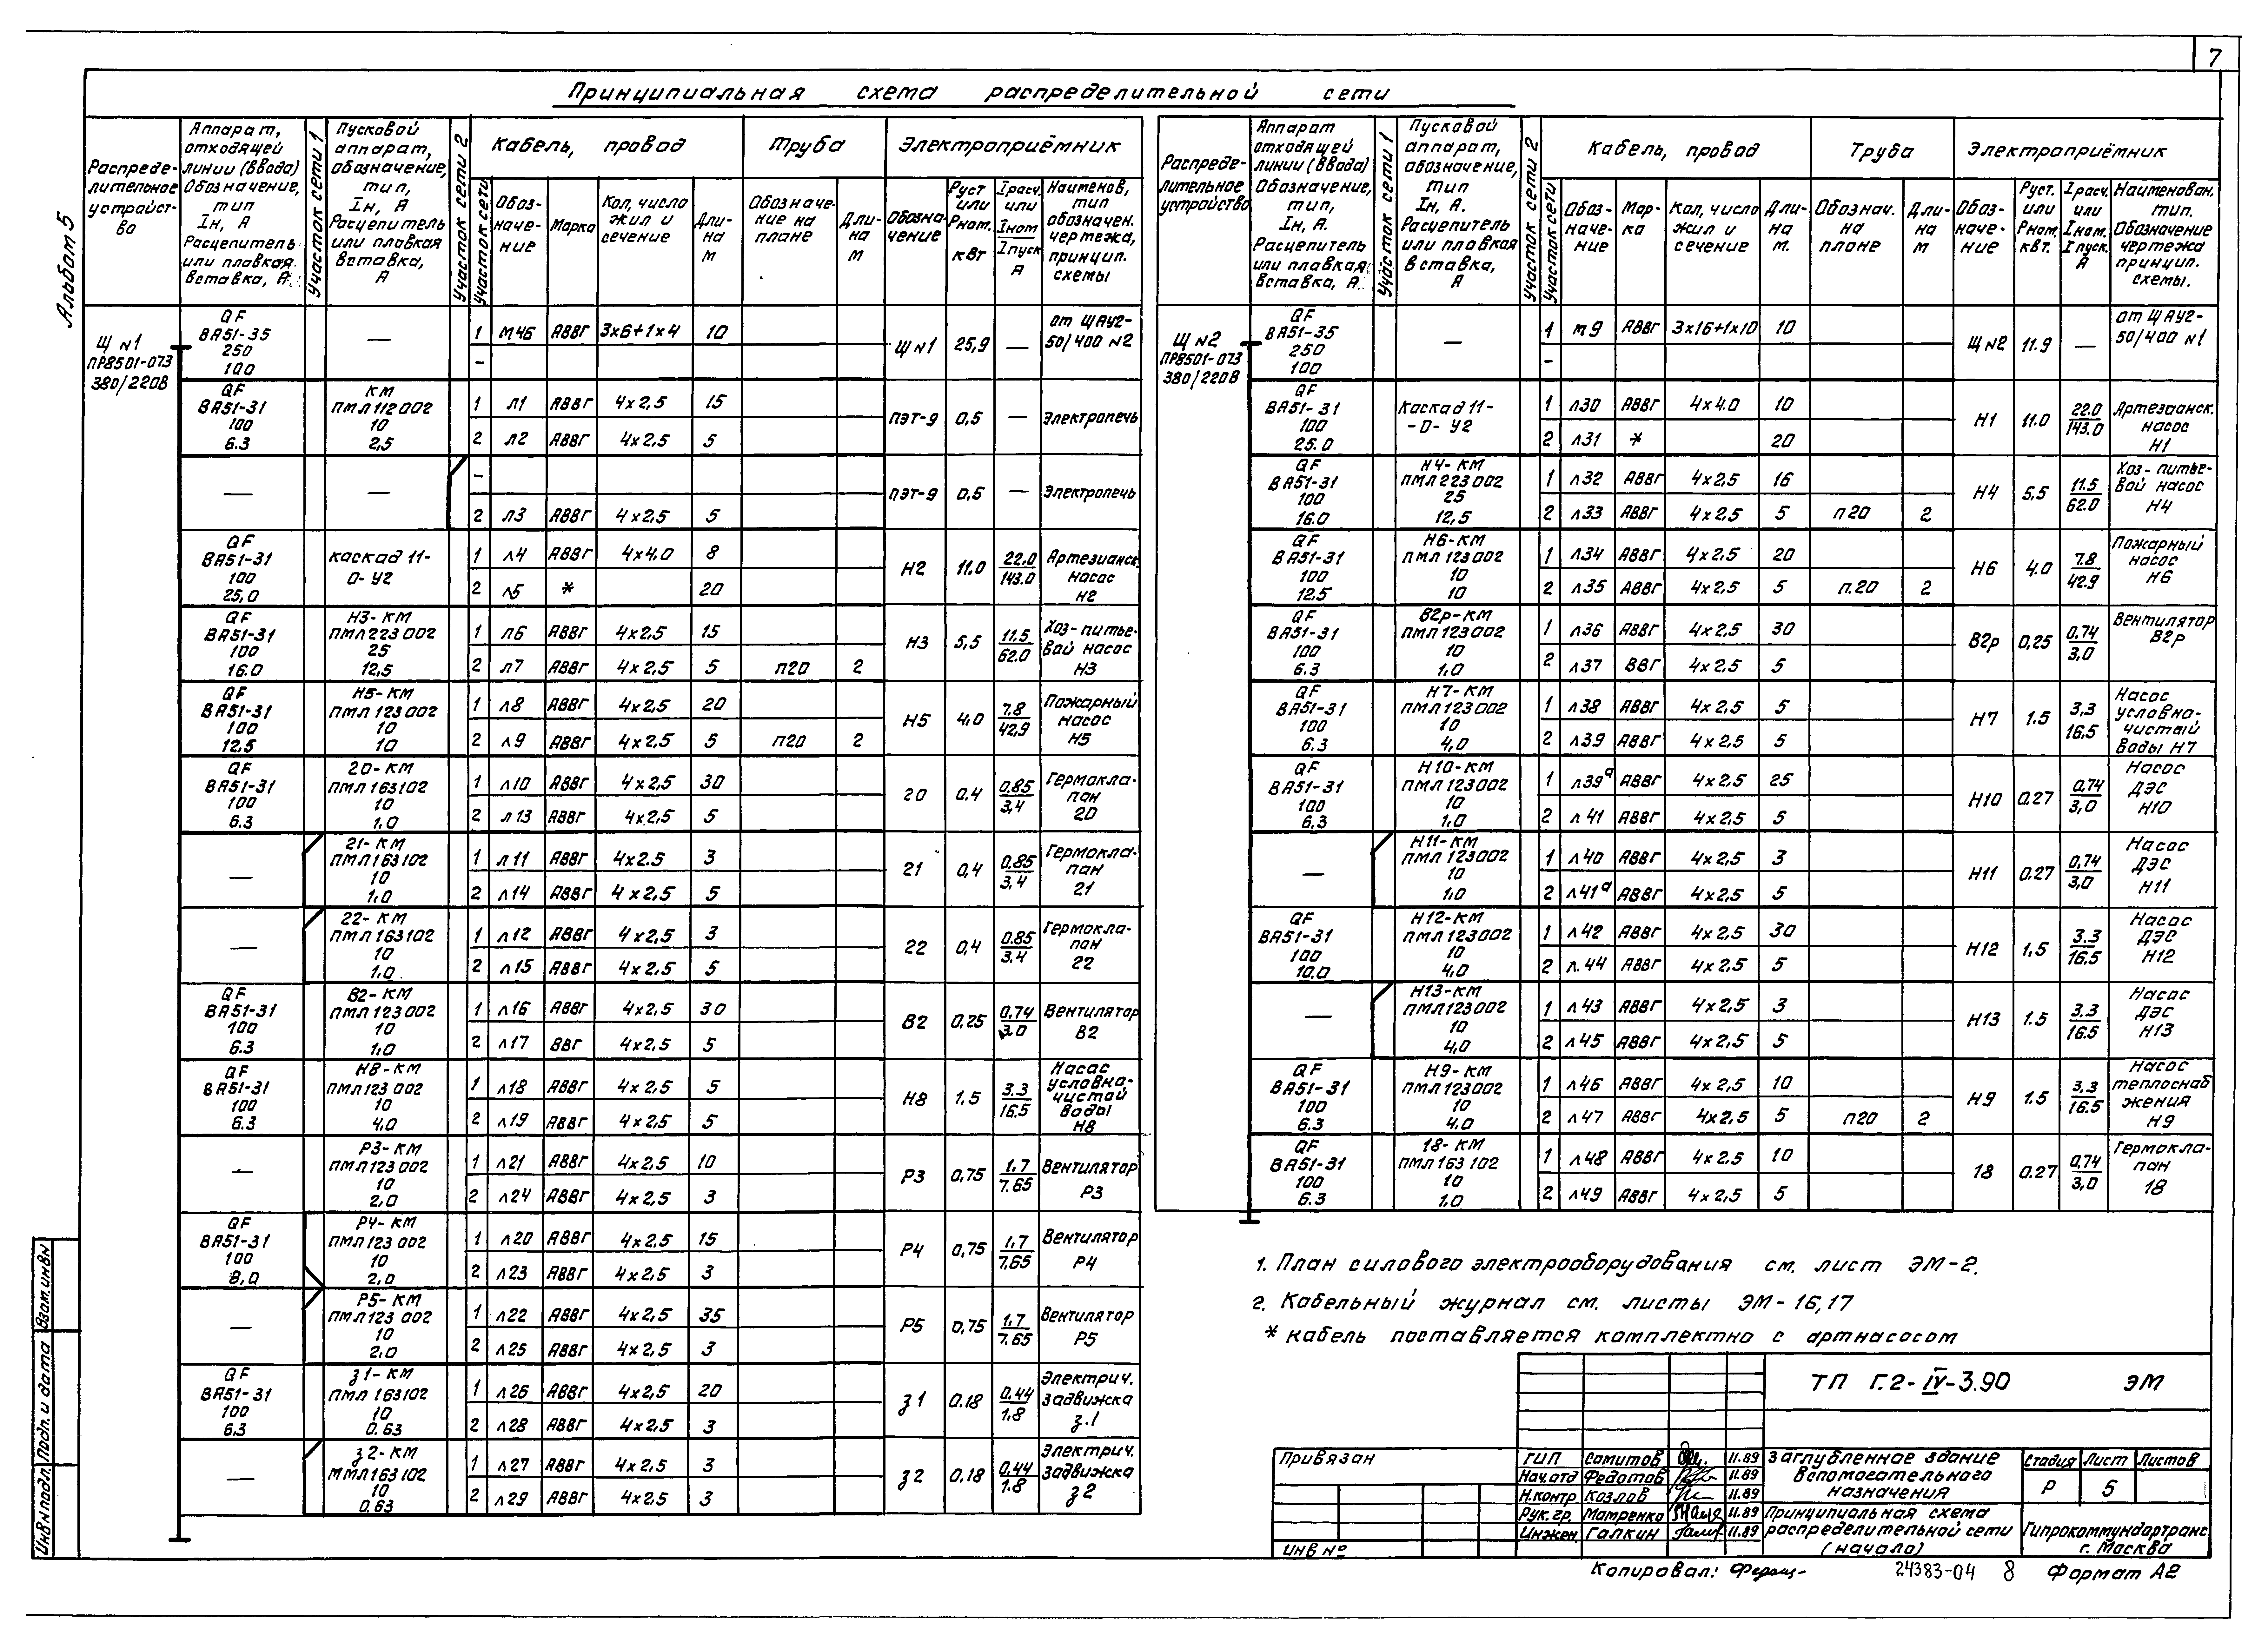 7
Альбом 5
Принципиальная схема распределительной сети
Распределительное устройство | Аппарат, отходящей линии (ввода) Обозначение, тип Iн, А Расцепитель или плавкая вставка, А | Участок сети 1 | Пусковой аппарат, обозначение, тип, Iн, А Расцепитель или плавкая вставка, А | Участок сети 2 | Кабель, провод | Труба | Электроприёмник
Участок сети | Обозначение | Марка | Кол, число жил и сечение | Длина м | Обозначение на плане | Длина м | Обозначение | Руст или Рном. кВт | Iрасч. или Iном Iпуск А | Наименов, тип обозначен. чертежа, принцип. схемы
Щ №1 ПР8501-073 380/220В
QF ВА51-35 250 100 | — | 1 М46 АВВГ 3х6+1х4 10 | - | Щ №1 | 25,9 | — | от ЩАУ2-50/400 №2
QF ВА51-31 100 6.3 | КМ ПМЛ112002 10 2,5 | 1 Л1 АВВГ 4х2,5 15 | 2 Л2 АВВГ 4х2,5 5 | ПЭТ-9 | 0,5 | — | Электропечь
— | — | - | 2 Л3 АВВГ 4х2,5 5 | ПЭТ-9 | 0,5 | — | Электропечь
QF ВА51-31 100 25,0 | Каскад 11-0-У2 | 1 Л4 АВВГ 4х4.0 8 | 2 Л5 * 20 | Н2 | 11,0 | 22.0 143.0 | Артезианск. насос Н2
QF ВА51-31 100 16.0 | Н3-КМ ПМЛ223002 25 12,5 | 1 Л6 АВВГ 4х2,5 15 | 2 Л7 АВВГ 4х2,5 5 П20 2 | Н3 | 5,5 | 11.5 62.0 | Хоз-питьевой насос Н3
QF ВА51-31 100 12,5 | Н5-КМ ПМЛ123002 10 10 | 1 Л8 АВВГ 4х2,5 20 | 2 Л9 АВВГ 4х2,5 5 П20 2 | Н5 | 4,0 | 7.8 42,9 | Пожарный насос Н5
QF ВА51-31 100 6.3 | 20-КМ ПМЛ163102 10 1.0 | 1 Л10 АВВГ 4х2,5 30 | 2 Л13 АВВГ 4х2,5 5 | 20 | 0.4 | 0.85 3,4 | Гермоклапан 20
— | 21-КМ ПМЛ163102 10 1,0 | 1 Л11 АВВГ 4х2.5 3 | 2 Л14 АВВГ 4х2,5 5 | 21 | 0,4 | 0.85 3,4 | Гермоклапан 21
— | 22-КМ ПМЛ163102 10 1.0 | 1 Л12 АВВГ 4х2,5 3 | 2 Л15 АВВГ 4х2,5 5 | 22 | 0,4 | 0.85 3.4 | Гермоклапан 22
QF ВА51-31 100 6.3 | В2-КМ ПМЛ123002 10 1,0 | 1 Л16 АВВГ 4х2,5 30 | 2 Л17 ВВГ 4х2,5 5 | В2 | 0,25 | 0,74 3.0 | Вентилятор В2
QF ВА51-31 100 6.3 | Н8-КМ ПМЛ123002 10 4,0 | 1 Л18 АВВГ 4х2,5 5 | 2 Л19 АВВГ 4х2.5 5 | Н8 | 1,5 | 3.3 16.5 | Насос условно-чистой воды Н8
— | Р3-КМ ПМЛ123002 10 2,0 | 1 Л21 АВВГ 4х2,5 10 | 2 Л24 АВВГ 4х2,5 3 | Р3 | 0,75 | 1,7 7.65 | Вентилятор Р3
QF ВА51-31 100 8,0 | Р4-КМ ПМЛ123002 10 2,0 | 1 Л20 АВВГ 4х2,5 15 | 2 Л23 АВВГ 4х2,5 3 | Р4 | 0,75 | 1,7 7,65 | Вентилятор Р4
— | Р5-КМ ПМЛ123002 10 2.0 | 1 Л22 АВВГ 4х2,5 35 | 2 Л25 АВВГ 4х2,5 3 | Р5 | 0,75 | 1,7 7.65 | Вентилятор Р5
QF ВА51-31 100 6.3 | З1-КМ ПМЛ163102 10 0.63 | 1 Л26 АВВГ 4х2,5 20 | 2 Л28 АВВГ 4х2,5 3 | З1 | 0.18 | 0.44 1.8 | Электрич. задвижка З.1
— | З2-КМ ММЛ163102 10 0,63 | 1 Л27 АВВГ 4х2,5 3 | 2 Л29 АВВГ 4х2,5 3 | З2 | 0,18 | 0.44 1.8 | Электрич. задвижка З2
Распределительное устройство | Аппарат отходящей линии (ввода) Обозначение, тип, Iн, А. Расцепитель или плавкая вставка, А | Участок сети 1 | Пусковой аппарат, обозначение, тип Iн, А. Расцепитель или плавкая вставка, А | Участок сети 2 | Кабель, провод | Труба | Электроприёмник
Участок сети | Обозначение | Марка | Кол, число жил и сечение | Длина м. | Обознач. на плане | Длина м | Обозначение | Руст. или Рном. кВт. | Iрасч. или Iном. Iпуск. А | Наименован. тип. Обозначение чертежа принцип. схемы.
Щ №2 ПР8501-073 380/220В
QF ВА51-35 250 100 | — | 1 М9 АВВГ 3х16+1х10 10 | - | Щ №2 | 11.9 | — | от ЩАУ2-50/400 №1
QF ВА51-31 100 25.0 | Каскад 11-0-У2 | 1 Л30 АВВГ 4х4.0 10 | 2 Л31 * 20 | Н1 | 11.0 | 22.0 143.0 | Артезианск. насос Н1
QF ВА51-31 100 16.0 | Н4-КМ ПМЛ223002 25 12,5 | 1 Л32 АВВГ 4х2,5 16 | 2 Л33 АВВГ 4х2,5 5 П20 2 | Н4 | 5,5 | 11.5 62.0 | Хоз-питьевой насос Н4
QF ВА51-31 100 12.5 | Н6-КМ ПМЛ123002 10 10 | 1 Л34 АВВГ 4х2.5 20 | 2 Л35 АВВГ 4х2,5 5 П.20 2 | Н6 | 4.0 | 7.8 42.9 | Пожарный насос Н6
QF ВА51-31 100 6.3 | В2р-КМ ПМЛ123002 10 1,0 | 1 Л36 АВВГ 4х2,5 30 | 2 Л37 ВВГ 4х2,5 5 | В2р | 0,25 | 0.74 3,0 | Вентилятор В2р
QF ВА51-31 100 6.3 | Н7-КМ ПМЛ123002 10 4,0 | 1 Л38 АВВГ 4х2,5 5 | 2 Л39 АВВГ 4х2,5 5 | Н7 | 1.5 | 3,3 16,5 | Насос условно-чистый воды Н7
QF ВА51-31 100 6.3 | Н10-КМ ПМЛ123002 10 1,0 | 1 Л39а АВВГ 4х2,5 25 | 2 Л41 АВВГ 4х2,5 5 | Н10 | 0.27 | 0,74 3,0 | Насос ДЭС Н10
— | Н11-КМ ПМЛ123002 10 1,0 | 1 Л40 АВВГ 4х2,5 3 | 2 Л41а АВВГ 4х2,5 5 | Н11 | 0.27 | 0,74 3,0 | Насос ДЭС Н11
QF ВА51-31 100 10.0 | Н12-КМ ПМЛ123002 10 4,0 | 1 Л42 АВВГ 4х2,5 30 | 2 Л.44 АВВГ 4х2,5 5 | Н12 | 1,5 | 3.3 16.5 | Насос ДЭС Н12
— | Н13-КМ ПМЛ123002 10 4,0 | 1 Л43 АВВГ 4х2,5 3 | 2 Л45 АВВГ 4х2,5 5 | Н13 | 1.5 | 3.3 16.5 | Насос ДЭС Н13
QF ВА51-31 100 6.3 | Н9-КМ ПМЛ123002 10 4,0 | 1 Л46 АВВГ 4х2,5 10 | 2 Л47 АВВГ 4х2,5 5 П20 2 | Н9 | 1.5 | 3,3 16.5 | Насос теплоснабжения Н9
QF ВА51-31 100 6.3 | 18-КМ ПМЛ163102 10 1,0 | 1 Л48 АВВГ 4х2,5 10 | 2 Л49 АВВГ 4х2,5 5 | 18 | 0.27 | 0,74 3,0 | Гермоклапан 18
1. План силового электрооборудования см. лист ЭМ-2.
2. Кабельный журнал см. листы ЭМ-16,17
* кабель поставляется комплектно с артнасосом
ТП Г.2-IV-3.90 ЭМ
Привязан
Инв №
ГИП Самитов 11.89
Нач.отд Федотов 11.89
Н.контр Козлов 11.89
Рук.гр. Матренко 11.89
Инжен. Галкин 11.89
Заглубленное здание вспомогательного назначения
Стадия Лист Листов
Р 5
Принципиальная схема распределительной сети (начало)
Гипрокоммундортранс г. Москва
Копировал:
24383-04 8 Формат А2
Инв№подл. Подп. и дата Взам.инв№